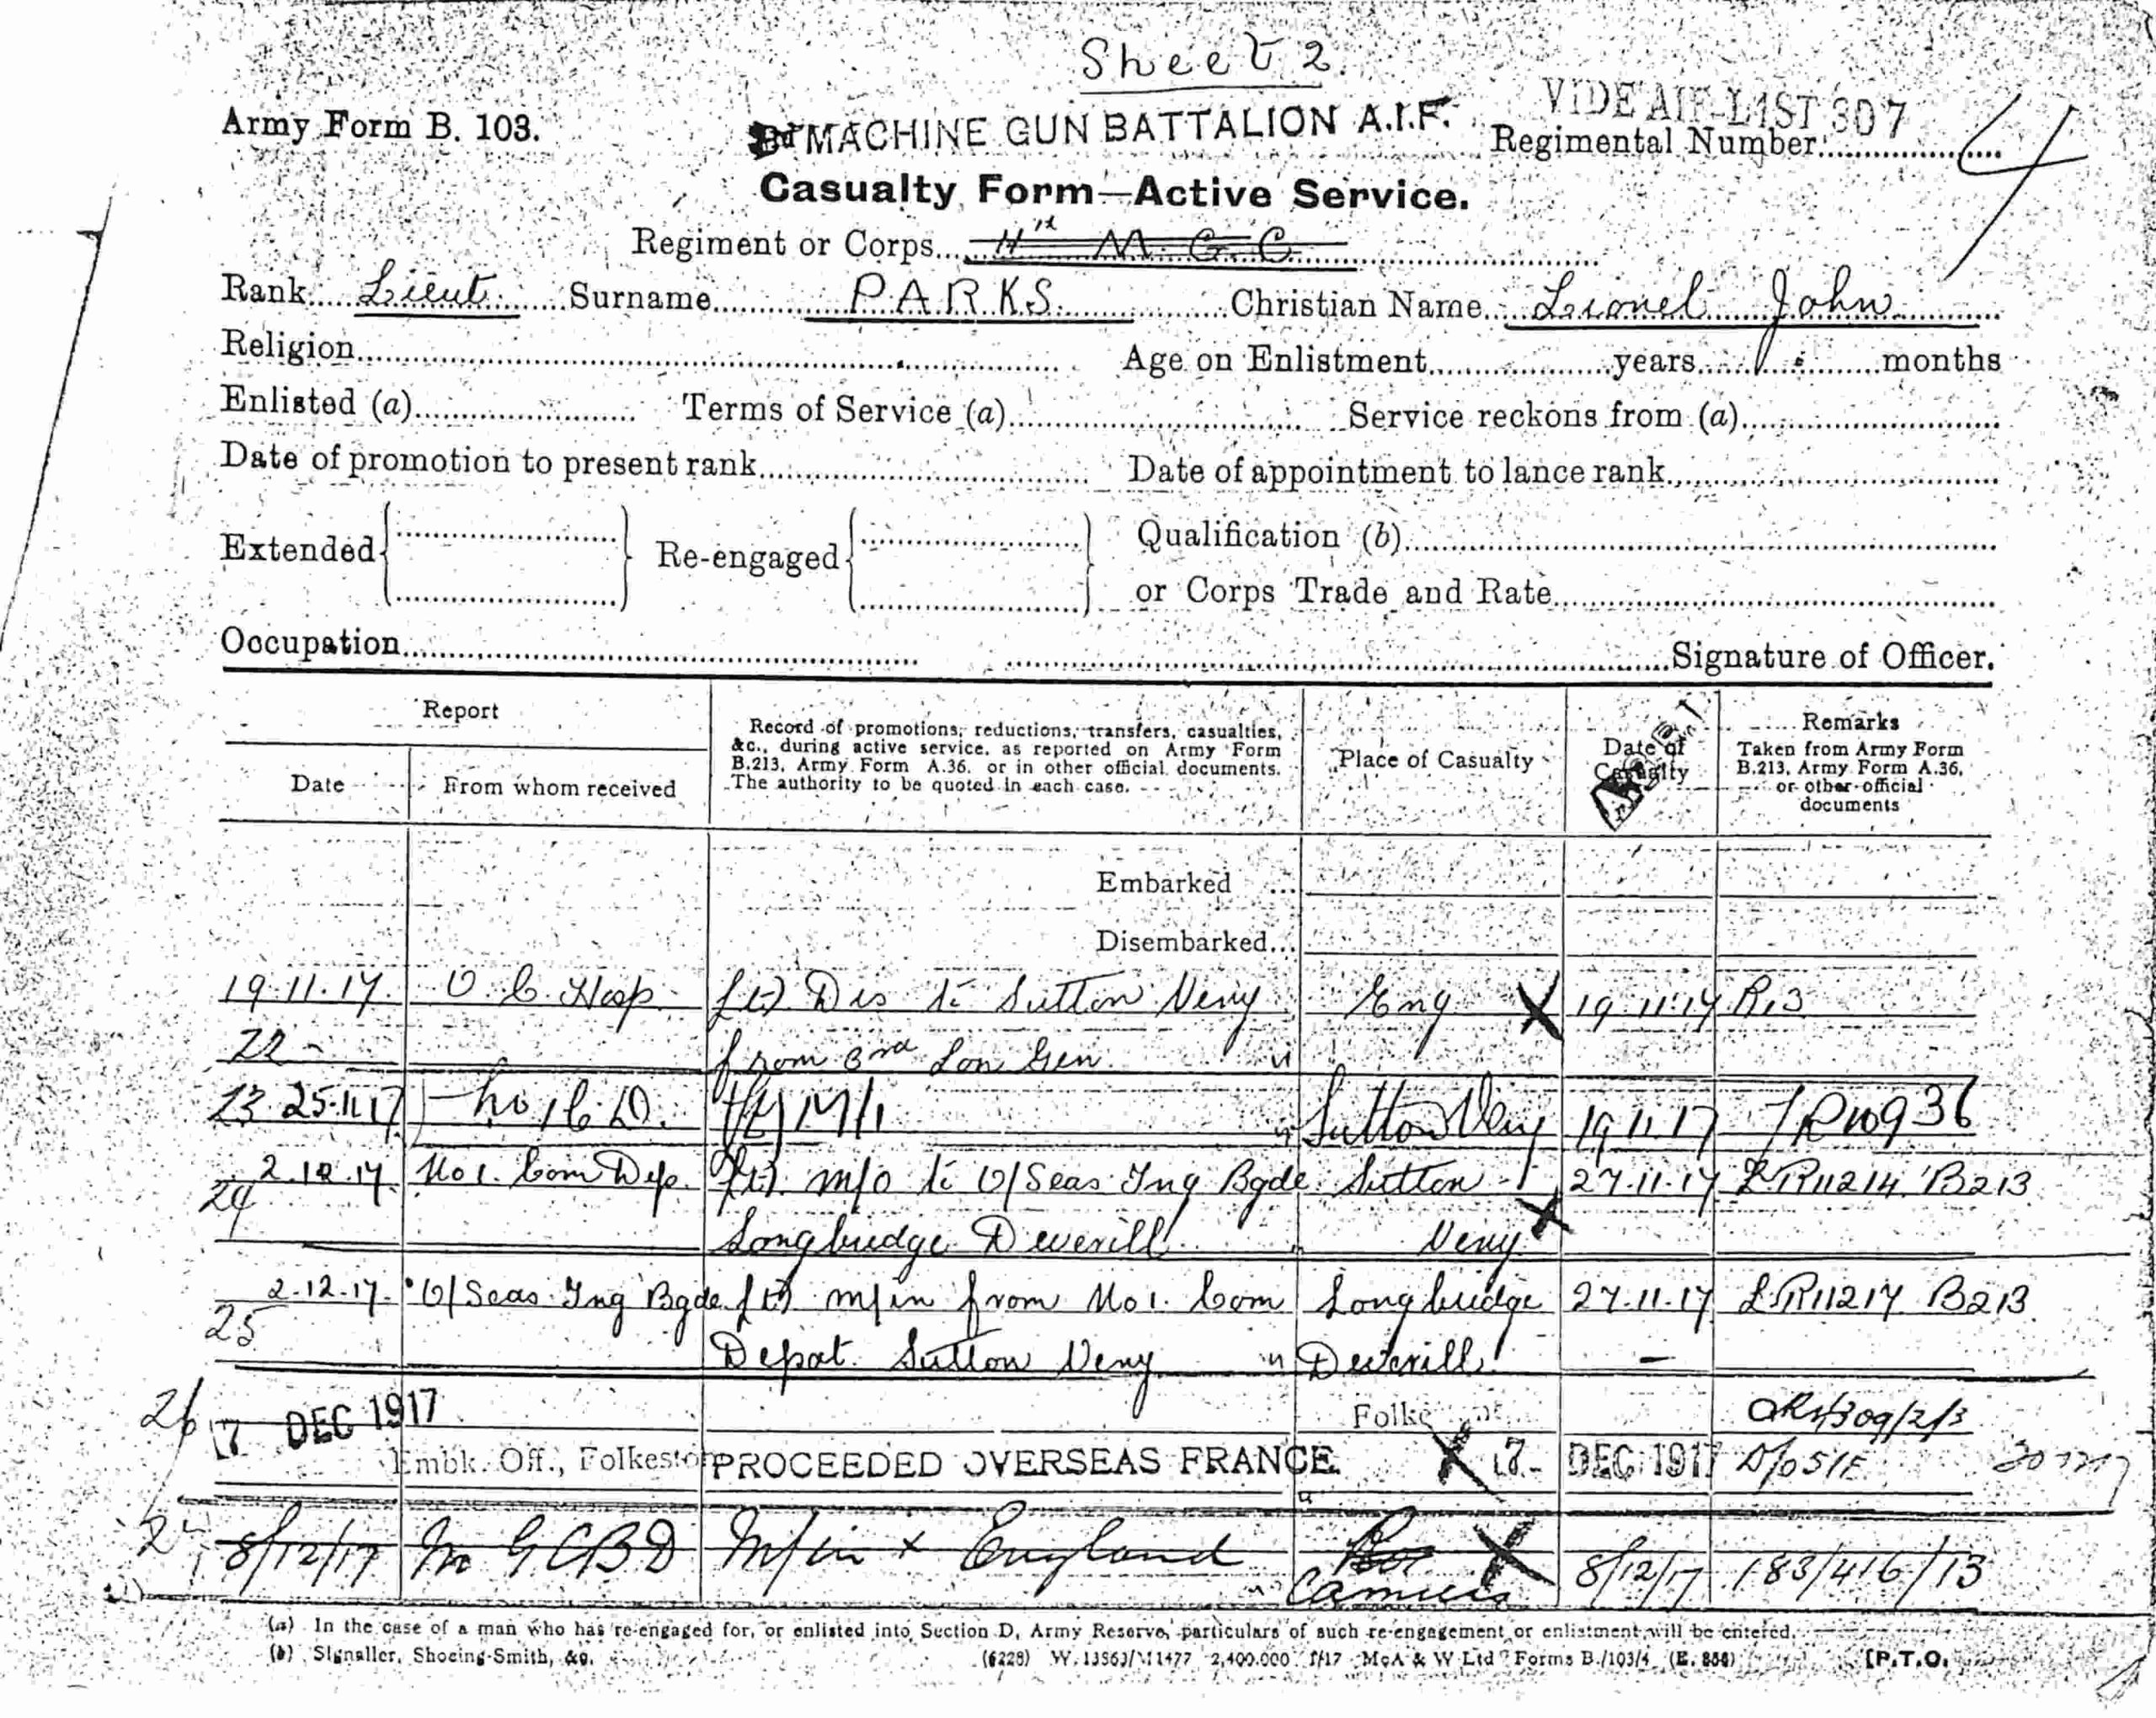 Sheet 2.
Army Form B. 103.
MACHINE GUN BATTALION A.I.F.
VIDE AIF LIST 307
Regimental Number
Casualty Form—Active Service.
Regiment or Corps M. G. C
Rank Lieut. Surname PARKS. Christian Name Lionel John
Religion Age on Enlistment years months
Enlisted (a) Terms of Service (a) Service reckons from (a)
Date of promotion to present rank Date of appointment to lance rank
Extended Re-engaged Qualification (b)
or Corps Trade and Rate
Occupation Signature of Officer.
Report
Date
From whom received
Record of promotions, reductions, transfers, casualties,
&c., during active service, as reported on Army Form
B.213, Army Form A.36, or in other official documents.
The authority to be quoted in each case.
Place of Casualty
Date of
Casualty
Remarks
Taken from Army Form
B.213, Army Form A.36,
or other official
documents
Embarked ...
Disembarked...
19.11.17. O. C. Hosp. (t) Dis to Sutton Veny Eng X 19.11.17
22 from 3rd Lon Gen. "
23 25.11.17 No 1 C. D. M/I " Sutton Veny 19.11.17
24 2.12.17. No 1. Com Dep. (t) m/o to O/Seas Tng Bgde. Sutton 27.11.17 LR11214 B213
Longbridge Deverill " Veny X
25 2.12.17. O/Seas Tng Bgde (t) m/in from No 1. Com Longbridge 27.11.17. LR11217 B213
Depot. Sutton Veny " Deverill
26 7 DEC 1917
Embk. Off., Folkestone PROCEEDED OVERSEAS FRANCE. X 7 DEC 1917
27 8/12/17 M G C B D M/in + England Camiers X 8/12/17 183/416/13
(a) In the case of a man who has re-engaged for, or enlisted into Section D, Army Reserve, particulars of such re-engagement or enlistment will be entered.
(b) Signaller, Shoeing-Smith, &c.
2,400,000 McA & W Ltd Forms B./103/4 (E. 856) [P.T.O.